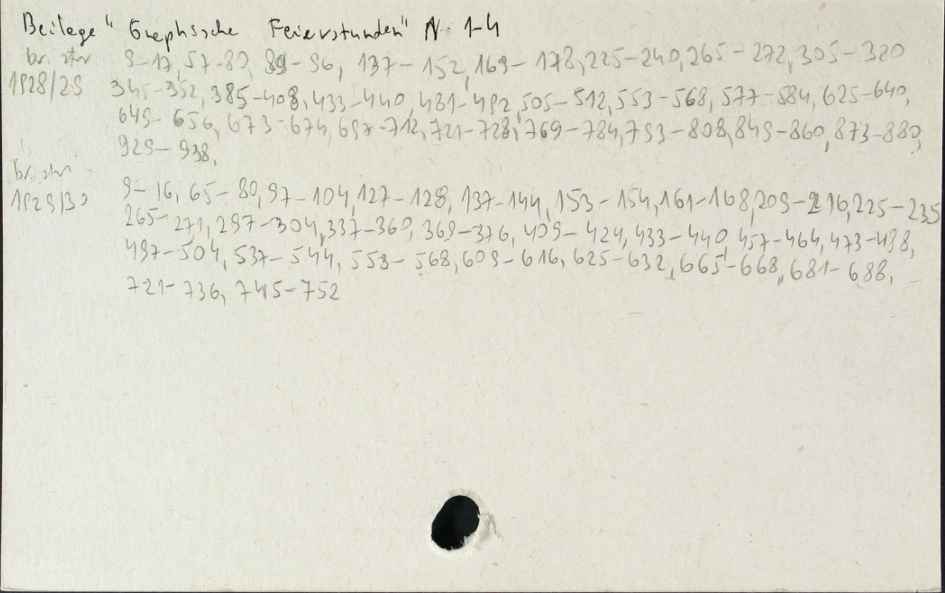 Beilage "Graphische Feierstunden" N. 1-4
br. str 9-17, 57-82, 89-96, 137-152, 169-178, 225-240, 265-272, 305-320
1928/29 345-352, 385-408, 433-440, 481-492, 505-512, 553-568, 577-584, 625-640,
649-656, 673-674, 697-712, 721-728, 769-784, 793-808, 849-860, 873-880,
929-938,
br. str.
1929/30 9-16, 65-80, 97-104, 127-128, 137-144, 153-154, 161-168, 209-216, 225-235
265-271, 297-304, 337-360, 369-376, 409-424, 433-440, 457-464, 473-488,
497-504, 537-544, 553-568, 609-616, 625-632, 665-668, 681-688,
721-736, 745-752